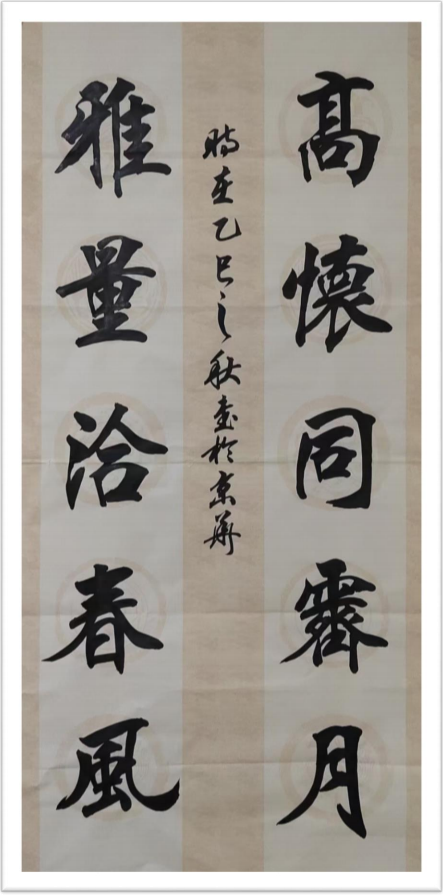 高懷同霽月
雅量洽春風
時在乙巳之秋書於京華